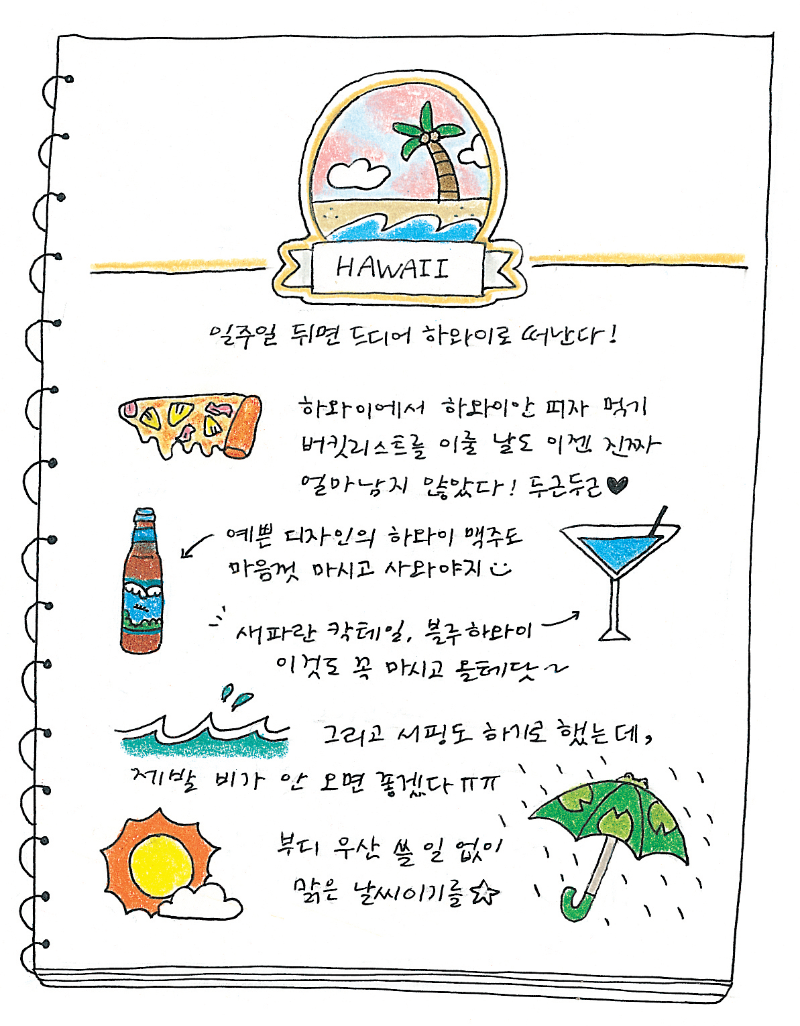 HAWAII
일주일 뒤면 드디어 하와이로 떠난다!
하와이에서 하와이안 피자 먹기
버킷리스트를 이룰 날도 이젠 진짜
얼마남지 않았다! 두근두근♥
예쁜 디자인의 하와이 맥주도
마음껏 마시고 사와야지
새파란 칵테일, 블루하와이
이것도 꼭 마시고 올테닷~
그리고 서핑도 하기로 했는데,
제발 비가 안 오면 좋겠다 ㅠㅠ
부디 우산 쓸 일 없이
맑은 날씨이기를☆